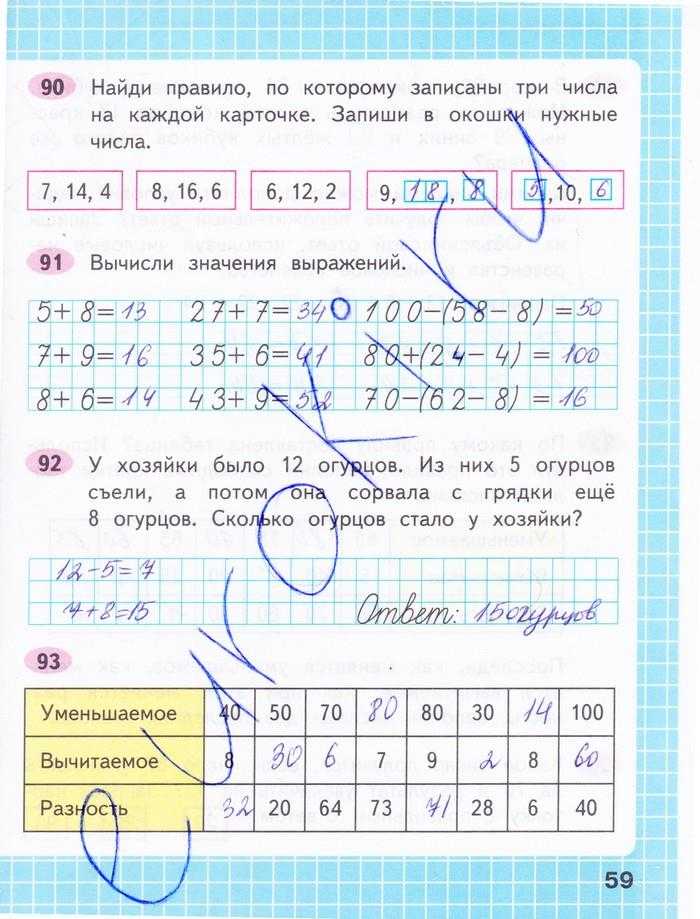 90 Найди правило, по которому записаны три числа
на каждой карточке. Запиши в окошки нужные
числа.
7, 14, 4 8, 16, 6 6, 12, 2 9, 18, 8 5,10, 6
91 Вычисли значения выражений.
5+8=13 27+7=340 100-(58-8)=50
7+9=16 35+6=41 80+(24-4)=100
8+6=14 43+9=52 70-(62-8)=16
92 У хозяйки было 12 огурцов. Из них 5 огурцов
съели, а потом она сорвала с грядки ещё
8 огурцов. Сколько огурцов стало у хозяйки?
12-5=7
7+8=15 Ответ: 15 огурцов
93
Уменьшаемое 40 50 70 80 80 30 14 100
Вычитаемое 8 30 6 7 9 2 8 60
Разность 32 20 64 73 71 28 6 40
59